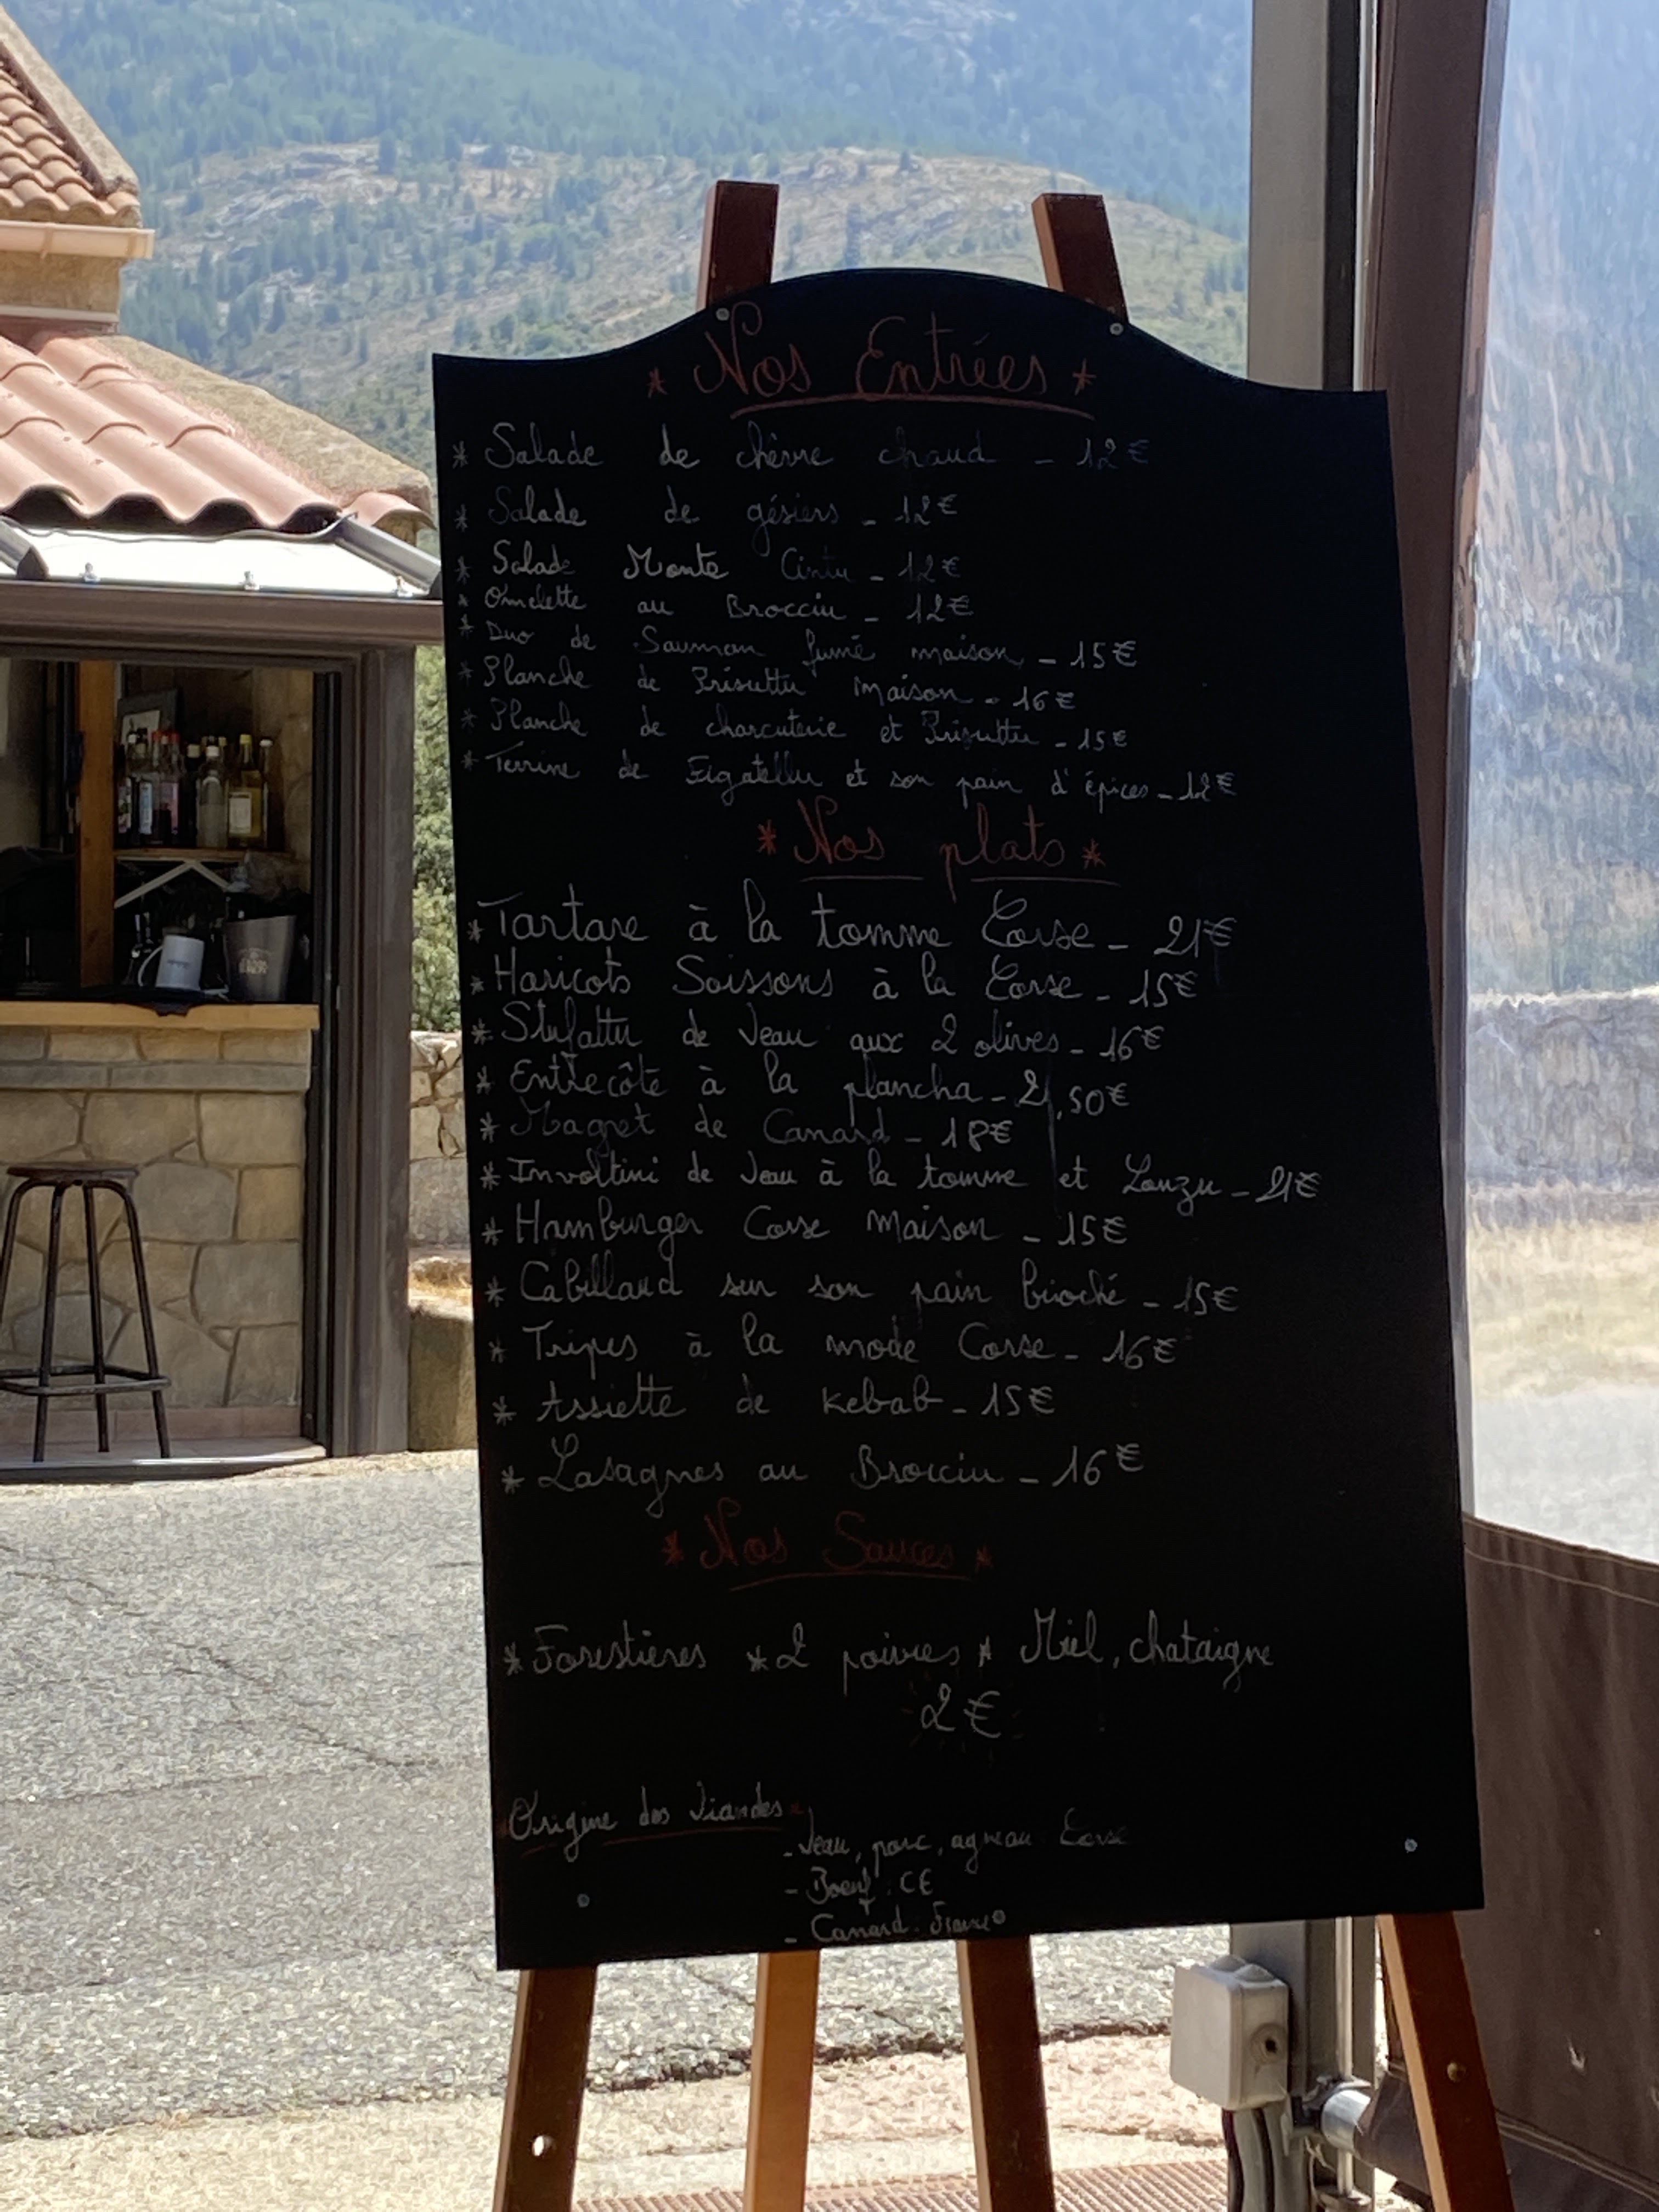 * Nos Entrées *
* Salade de chèvre chaud - 12€
* Salade de gésiers - 12€
* Salade Monte Cintu - 12€
* Omelette au Brocciu - 12€
* Duo de Saumon fumé maison - 15€
* Planche de Prisuttu Maison - 16€
* Planche de charcuterie et Prisuttu - 15€
* Terrine de Figatellu et son pain d'épices - 12€
* Nos plats *
* Tartare à la tomme Corse - 21€
* Haricots Soissons à la Corse - 15€
* Stufattu de Veau aux 2 olives - 16€
* Entrecôte à la plancha - 21,50€
* Magret de Canard - 18€
* Involtini de Veau à la tomme et Lonzu - 21€
* Hamburger Corse Maison - 15€
* Cabillaud sur son pain brioché - 15€
* Tripes à la mode Corse - 16€
* Assiette de kebab - 15€
* Lasagnes au Brocciu - 16€
* Nos Sauces *
* Forestières * 2 poivres * Miel, chataigne
2€
Origine des Viandes
- Veau, porc, agneau : Corse
- Boeuf : CE
- Canard : France